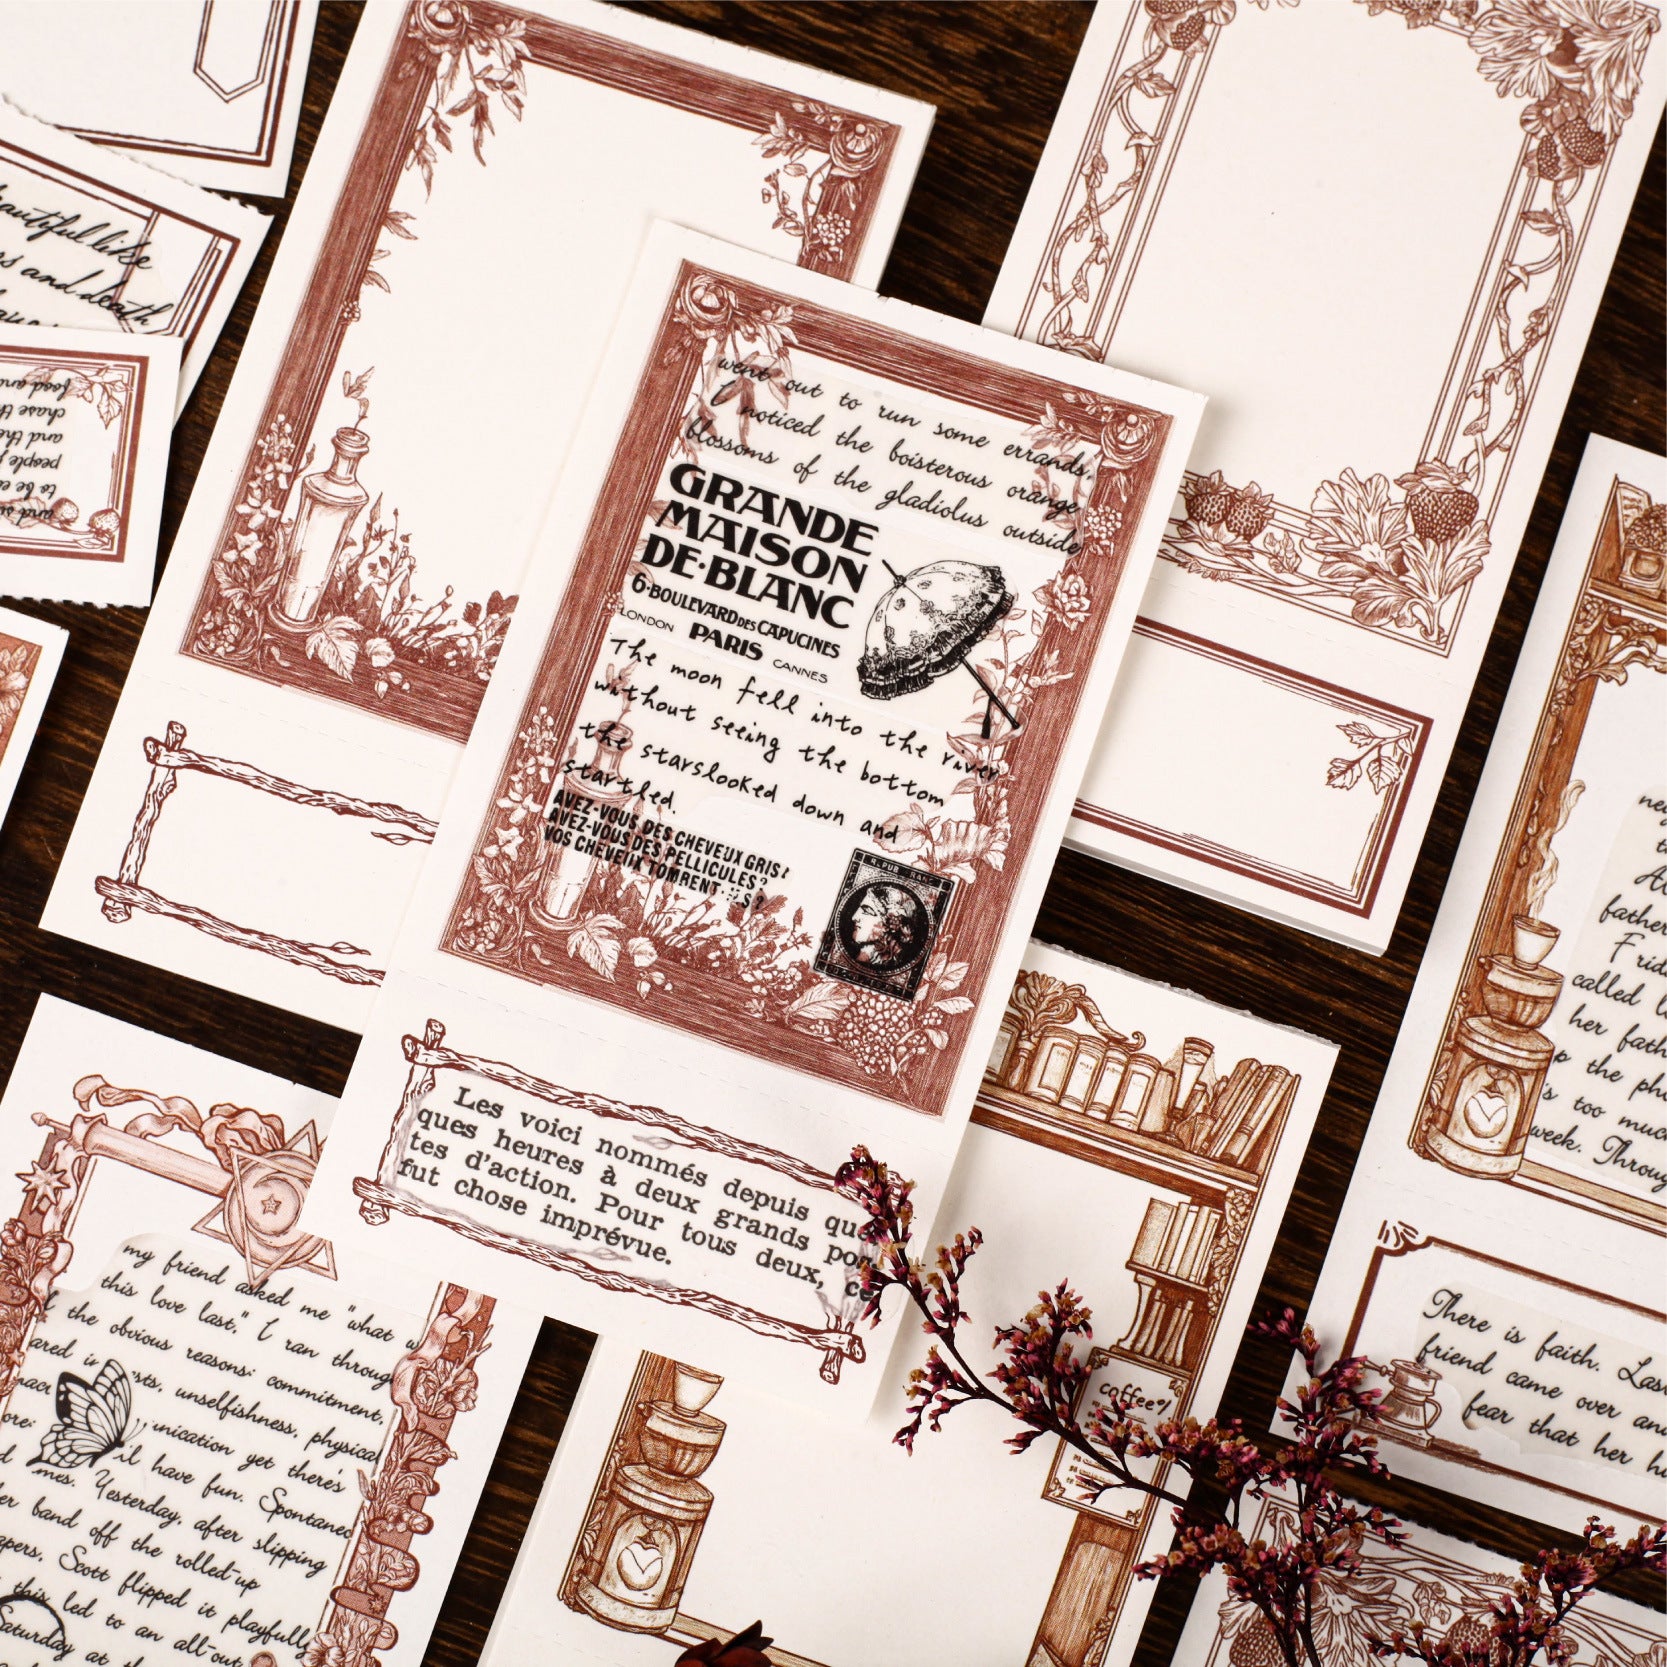 went out to run some errands,
I noticed the boisterous orange
blossoms of the gladiolus outside
GRANDE
MAISON
DE·BLANC
6·BOULEVARD DES CAPUCINES
LONDON PARIS CANNES
The moon fell into the river
without seeing the bottom
the starslooked down and
startled.
AVEZ-VOUS DES CHEVEUX GRIS?
AVEZ-VOUS DES PELLICULES?
VOS CHEVEUX TOMRENT
Les voici nommés depuis quel
ques heures à deux grands pos
tes d'action. Pour tous deux, ce
fut chose imprévue.
beautiful like
and death
food and
chase the
and the
people
to be
and
my friend asked me "what w
this love last," I ran through
the obvious reasons: commitment,
unselfishness, physical
unication yet there's
have fun. Spontaneo
mes. Yesterday, after slipping
band off the rolled-up
apers, Scott flipped it playfully
this led to an all-out
Saturday at the
coffee
father
Frid
called
her fath
the ph
too muc
week. Throug
There is faith. Las
friend came over an
fear that her h